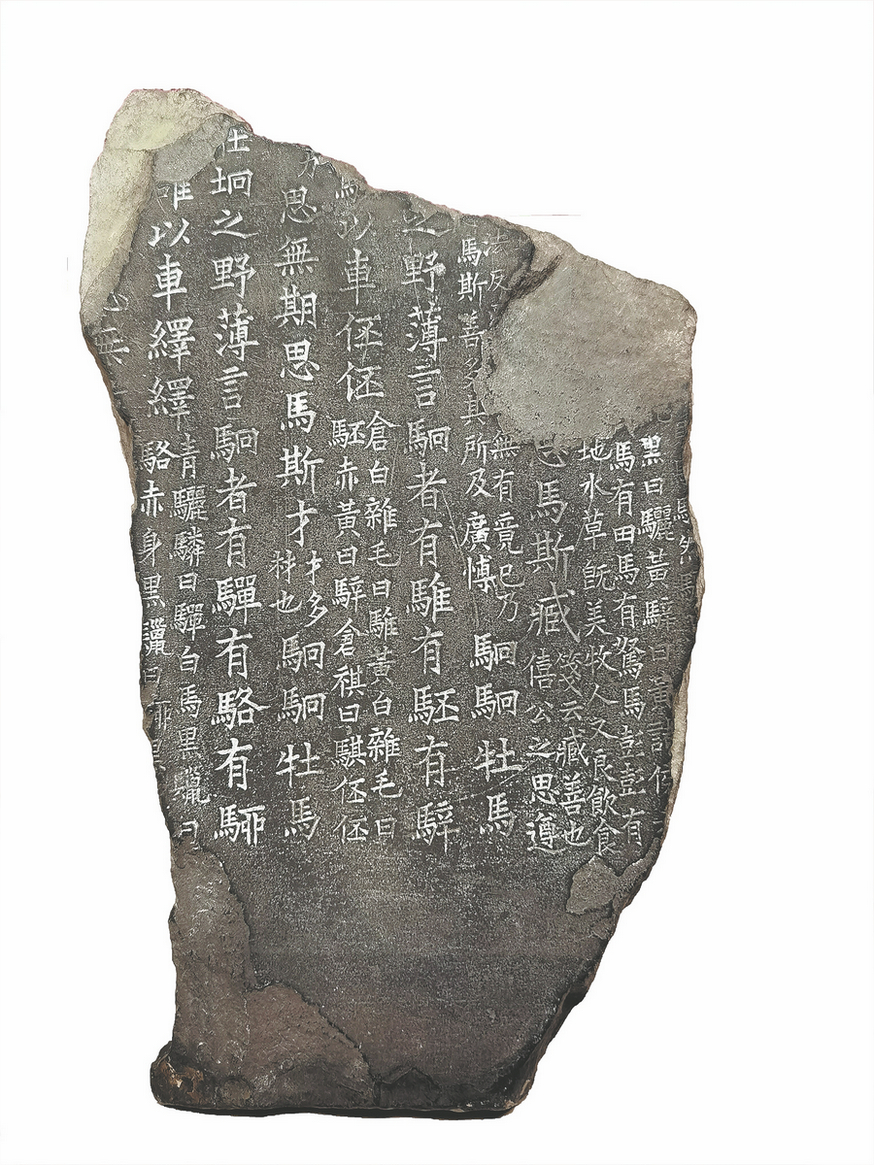 黑曰驪黃騂曰黃
馬有田馬有駑馬彭彭有
地水草旣美牧人又良飲食
思馬斯臧
箋云臧善也
僖公之思遵
法反
無有竟已乃
馬斯善多其所及廣愽
駉駉牡馬
之野薄言駉者有騅有駓有騂
以車伾伾
倉白雜毛曰騅黃白雜毛曰
駓赤黃曰騂倉祺曰騏伾伾
力
思無期思馬斯才
才多
材也
駉駉牡馬
在坰之野薄言駉者有驒有駱有駵
雒以車繹繹
青驪驎曰驒白馬黑鬣曰
駱赤身黑鬣曰駵黑
思無